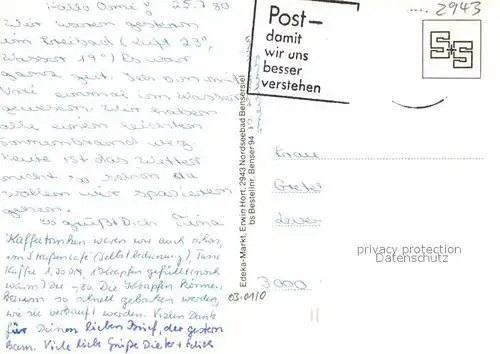 Hallo Omi! 25.7.80
Wir waren gestern
im Freibad (Luft 23°,
Wasser 19°) Es war
ganz gut. Ich bin mit
Vati einmal im Wasser
gewesen. Wir haben
alle einen leichten
Sonnenbrand weg
Heute ist das Wetter
nicht so schön da
wollen wir spazieren
gehen.
Es grüßt Dich Tina
Kaffeetrinken waren wir auch schon,
im Straßencafe (Selbstbedienung), Tasse
Kaffee 1,30 DM, 1 Krapfen gefüllt (noch
warm) DM -,80. Die Krapfen können
kaum so schnell gebacken werden,
wie sie verkauft werden. Vielen Dank
für Deinen lieben Brief, der gestern
kam. Viele liebe Grüße Dieter +
Edeka-Markt, Erwin Hort, 2943 Nordseebad Bensersiel
bs Bestellnr. Benser 94
Post-
damit
wir uns
besser
verstehen
2943
S+S
Frau
3000
03.0110
privacy protection
Datenschutz